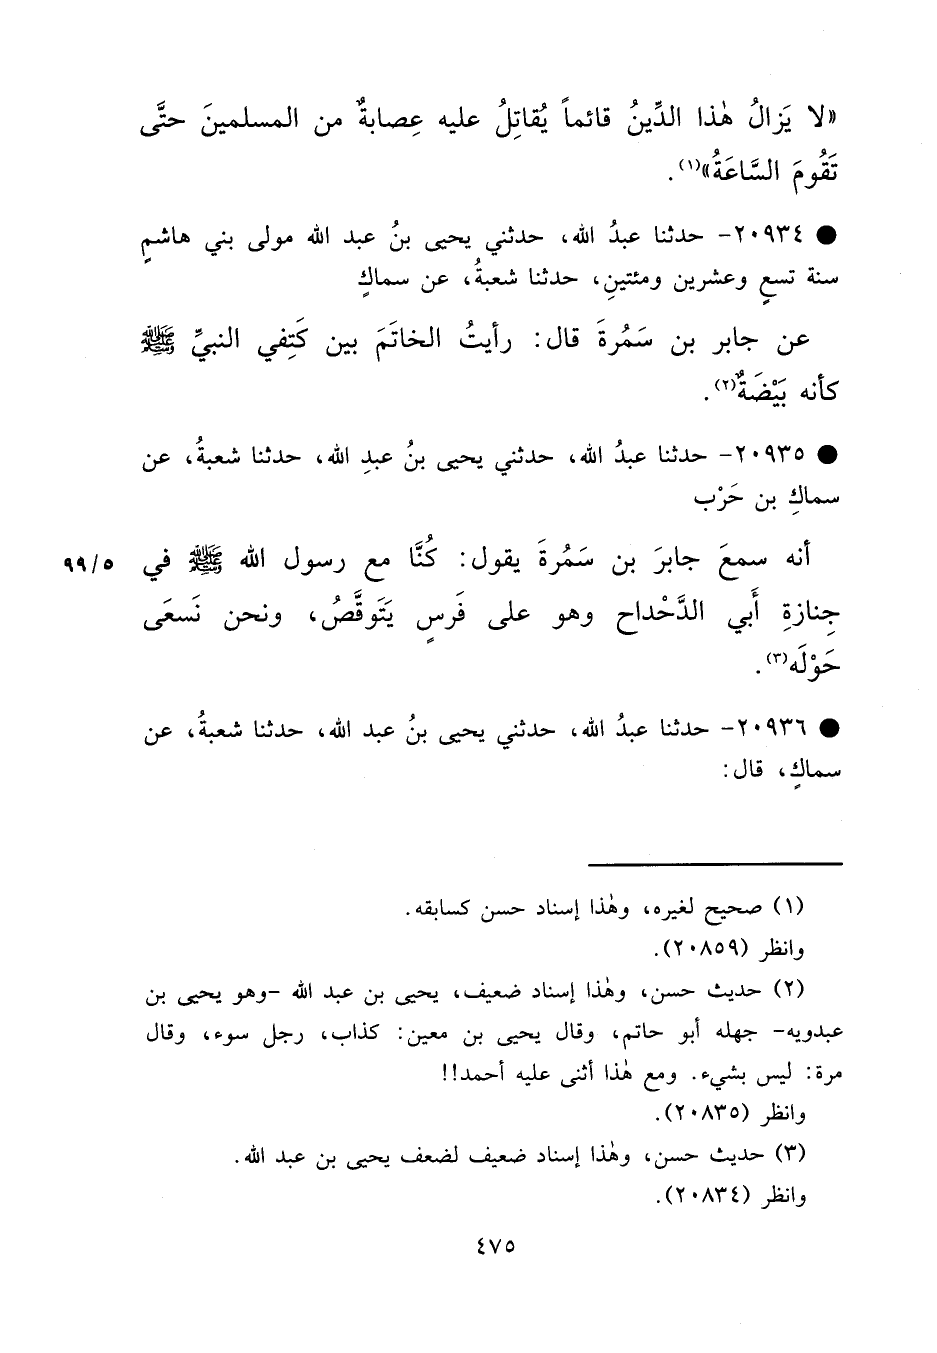 «لا يَزالُ هٰذا الدِّينُ قائماً يُقاتِلُ عليه عِصابةٌ من المسلمينَ حتَّى
تَقُومَ السَّاعَةُ»(١).
● ٢٠٩٣٤- حدثنا عبدُ الله، حدثني يحيى بنُ عبد الله مولى بني هاشمٍ
سنة تسعٍ وعشرين ومئتينِ، حدثنا شعبةُ، عن سماكٍ
عن جابر بن سَمُرةَ قال: رأيتُ الخاتَمَ بين كَتِفي النبيِّ ﷺ
كأنه بَيْضَةٌ(٢).
● ٢٠٩٣٥- حدثنا عبدُ الله، حدثني يحيى بنُ عبدِ الله، حدثنا شعبةُ، عن
سماكِ بن حَرْب
أنه سمعَ جابرَ بن سَمُرةَ يقول: كُنَّا مع رسول الله ﷺ في
٩٩/٥
جِنازةِ أَبي الدَّحْداح وهو على فَرسٍ يَتَوقَّصُ، ونحن نَسعَى
حَوْلَه(٣).
● ٢٠٩٣٦- حدثنا عبدُ الله، حدثني يحيى بنُ عبد الله، حدثنا شعبةُ، عن
سماكٍ، قال:
(١) صحيح لغيره، وهٰذا إسناد حسن كسابقه.
وانظر (٢٠٨٥٩).
(٢) حديث حسن، وهٰذا إسناد ضعيف، يحيى بن عبد الله -وهو يحيى بن
عبدويه- جهله أبو حاتم، وقال يحيى بن معين: كذاب، رجل سوء، وقال
مرة: ليس بشيء. ومع هٰذا أثنى عليه أحمد!!
وانظر (٢٠٨٣٥).
(٣) حديث حسن، وهٰذا إسناد ضعيف لضعف يحيى بن عبد الله.
وانظر (٢٠٨٣٤).
٤٧٥